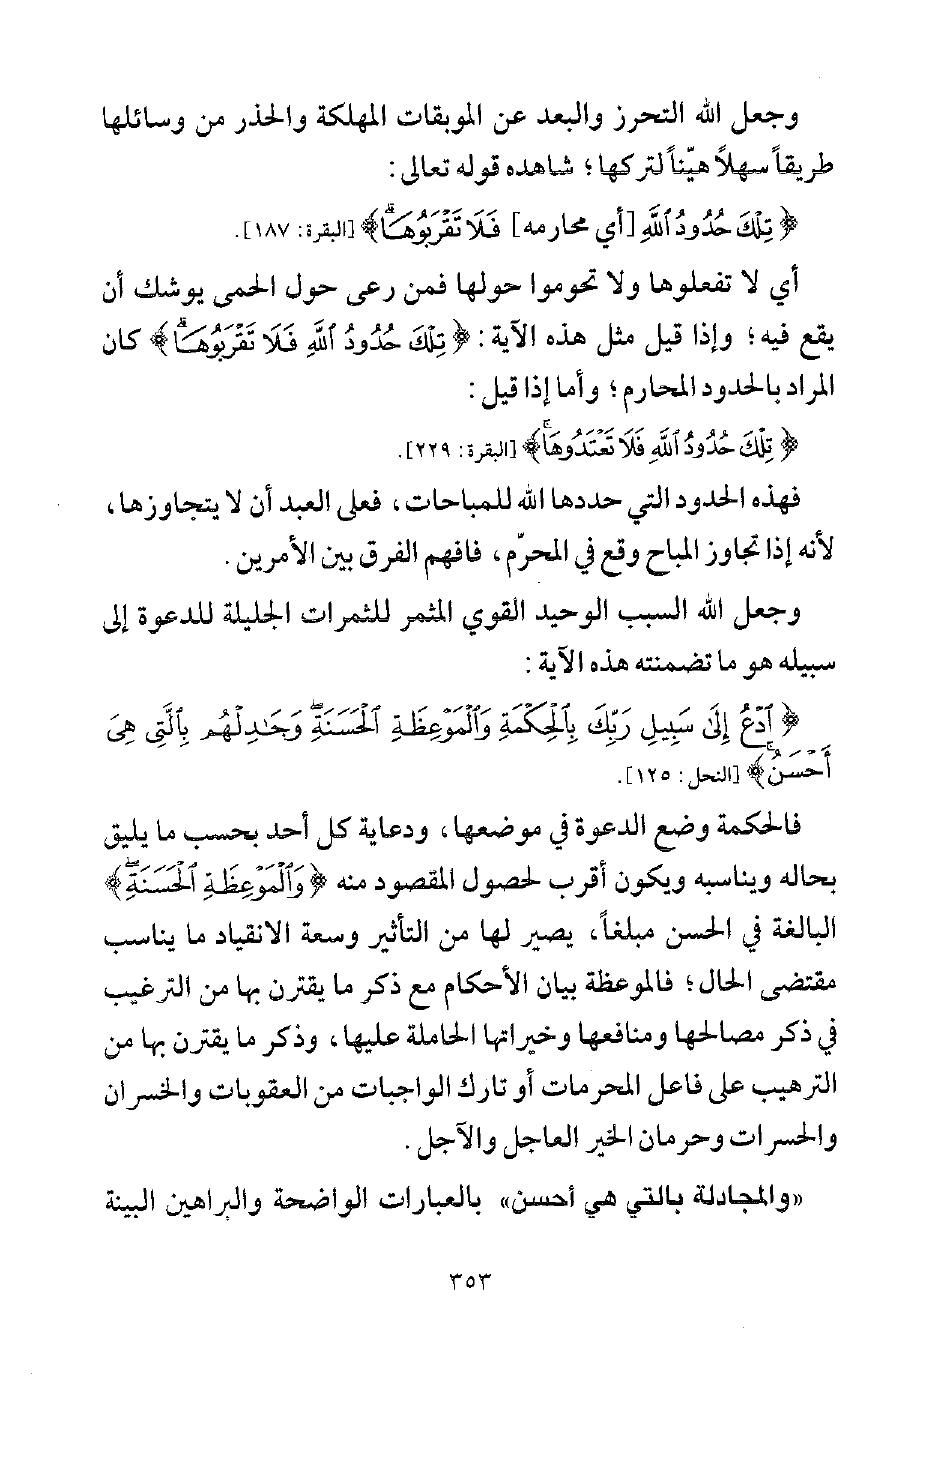 وجعل الله التحرز والبعد عن الموبقات المهلكة والحذر من وسائلها
طريقاً سهلاً هيّناً لتركها؛ شاهده قوله تعالى:
﴿ تِلْكَ حُدُودُ ٱللَّهِ [أي محارمه] فَلَا تَقْرَبُوهَاۗ ﴾ [البقرة: ١٨٧].
أي لا تفعلوها ولا تحوموا حولها فمن رعى حول الحمى يوشك أن
يقع فيه؛ وإذا قيل مثل هذه الآية: ﴿ تِلْكَ حُدُودُ ٱللَّهِ فَلَا تَقْرَبُوهَاۗ ﴾ كان
المراد بالحدود المحارم؛ وأما إذا قيل:
﴿ تِلْكَ حُدُودُ ٱللَّهِ فَلَا تَعْتَدُوهَاۚ ﴾ [البقرة: ٢٢٩].
فهذه الحدود التي حددها الله للمباحات، فعلى العبد أن لا يتجاوزها،
لأنه إذا تجاوز المباح وقع في المحرّم، فافهم الفرق بين الأمرين.
وجعل الله السبب الوحيد القوي المثمر للثمرات الجليلة للدعوة إلى
سبيله هو ما تضمنته هذه الآية:
﴿ ٱدْعُ إِلَىٰ سَبِيلِ رَبِّكَ بِٱلْحِكْمَةِ وَٱلْمَوْعِظَةِ ٱلْحَسَنَةِۖ وَجَٰدِلْهُم بِٱلَّتِى هِىَ
أَحْسَنُۚ ﴾ [النحل: ١٢٥].
فالحكمة وضع الدعوة في موضعها، ودعاية كل أحد بحسب ما يليق
بحاله ويناسبه ويكون أقرب لحصول المقصود منه ﴿ وَٱلْمَوْعِظَةِ ٱلْحَسَنَةِۖ ﴾
البالغة في الحسن مبلغاً، يصير لها من التأثير وسعة الانقياد ما يناسب
مقتضى الحال؛ فالموعظة بيان الأحكام مع ذكر ما يقترن بها من الترغيب
في ذكر مصالحها ومنافعها وخيراتها الحاملة عليها، وذكر ما يقترن بها من
الترهيب على فاعل المحرمات أو تارك الواجبات من العقوبات والخسران
والحسرات وحرمان الخير العاجل والآجل.
«والمجادلة بالتي هي أحسن» بالعبارات الواضحة والبراهين البينة
٣٥٣